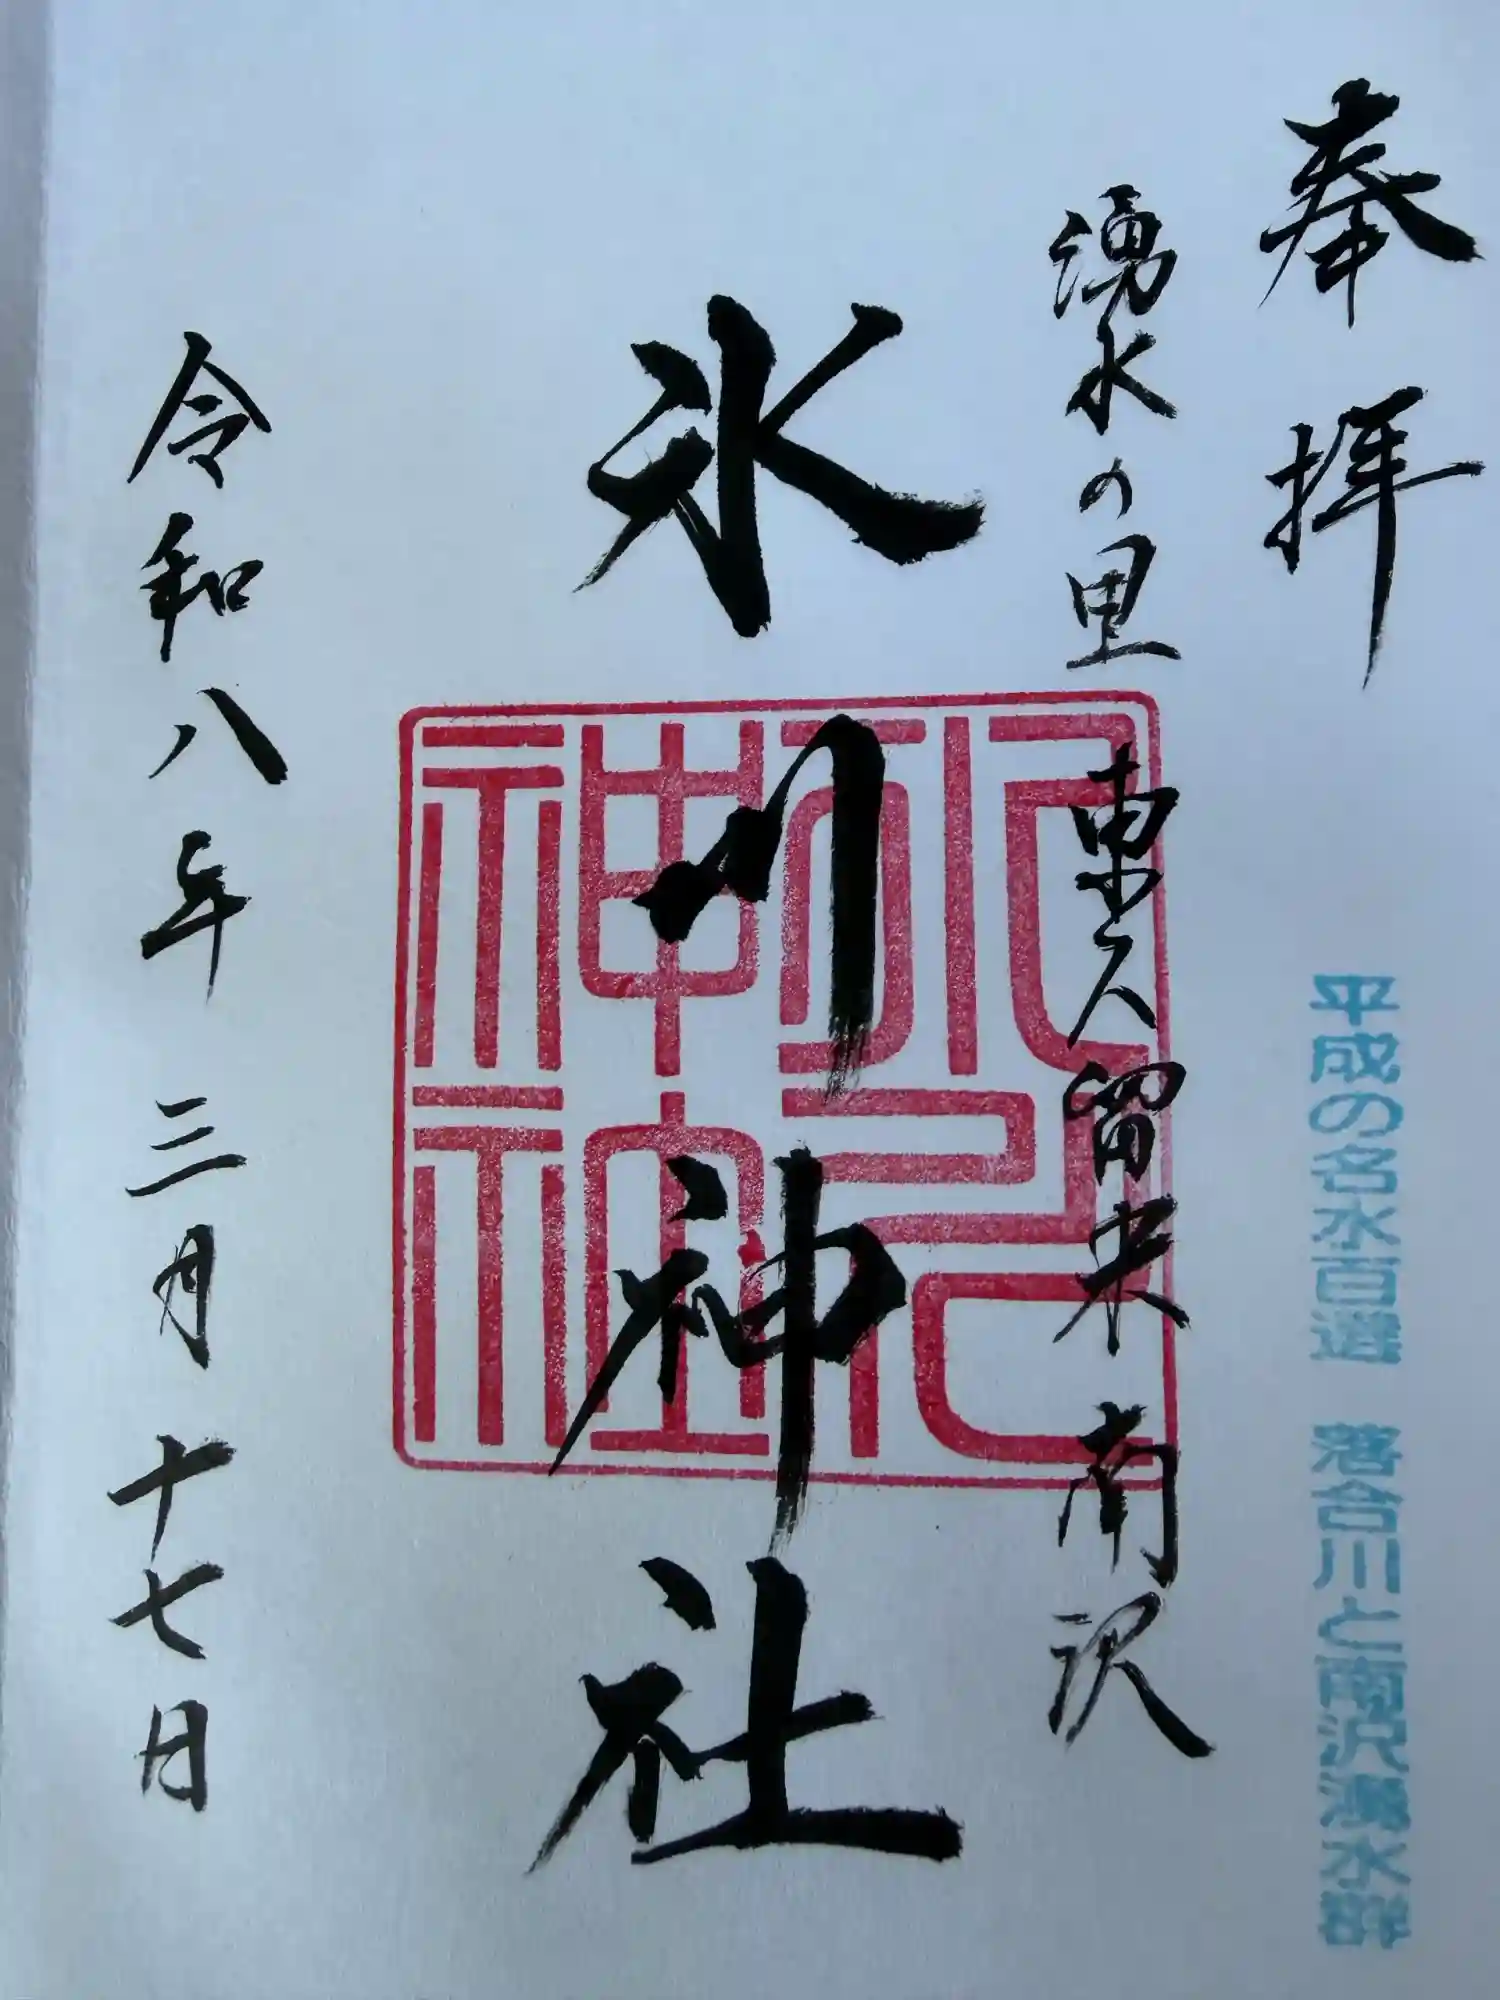 奉拝
平成の名水百選 落合川と南沢湧水群
湧水の里 東久留米 南沢
氷川神社
令和八年三月十七日